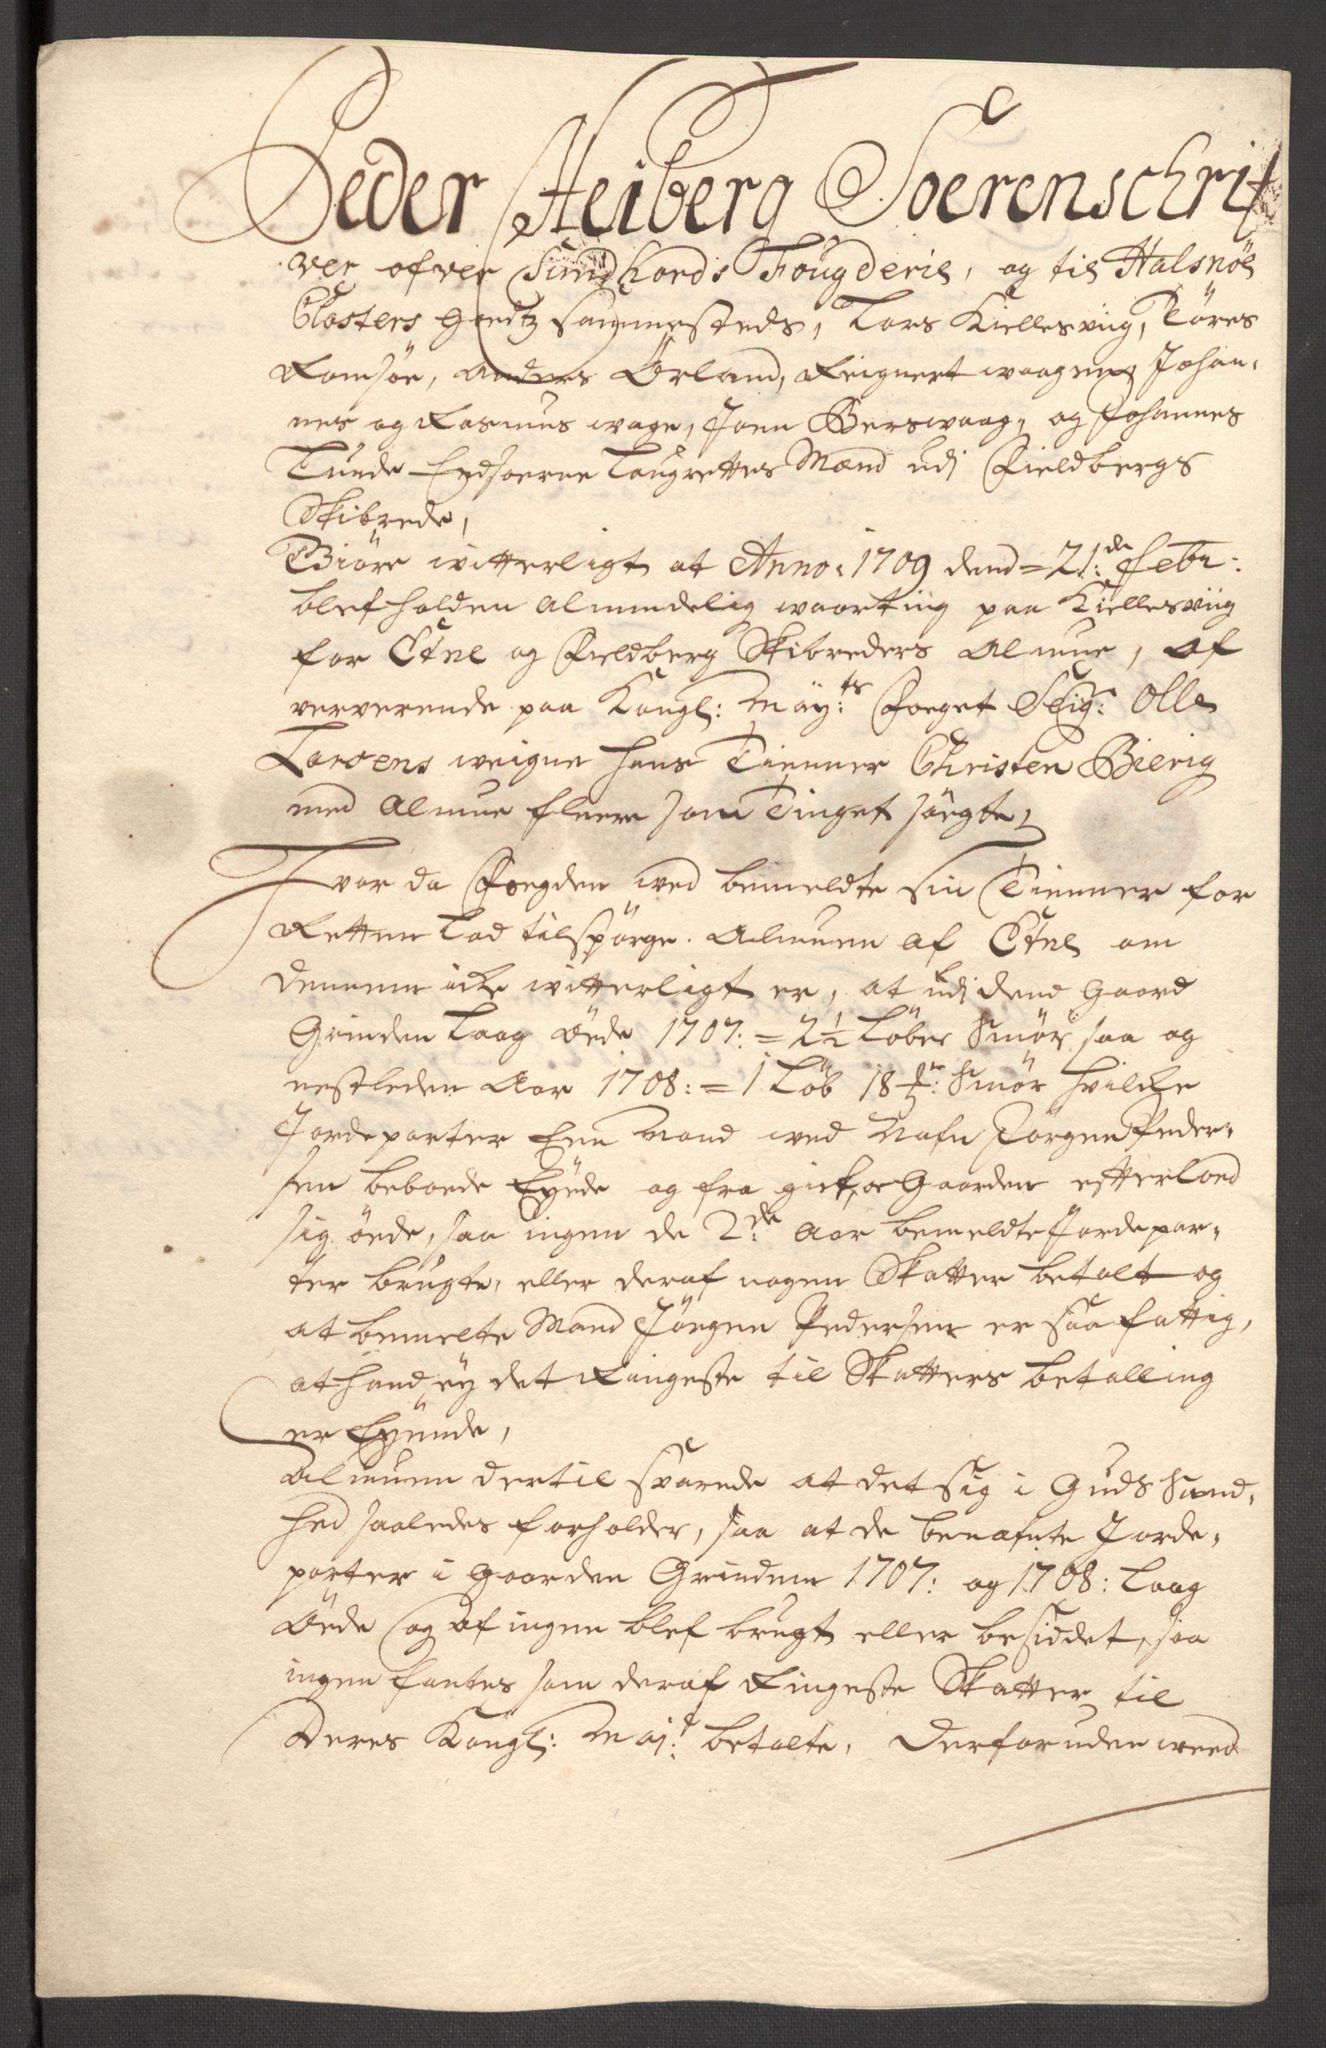 Peder Heiberg Soerenschrif
ver ofver Sundhords Fougderie, og til Halsnöe
Closters Goedtz sammesteds, Lars Kiellesviig, Töres
Ramsöe, Anders Örland, Reignert waagen, Johan-
nes og Rasmus wage, Joen Berswaag, og Johannes
Tunde Eedsoerne Laugrettes Mænd udj Fieldbergs
Skibrede,
Giöre witterligt at Anno: 1709 dend = 21:de Febr:
blef holden Almindelig waarting paa Kiellesviig
for Etne og Fieldberg Skibreders Almue, Of
ververende paa Kongl: Mäy:ts Foeget Seig:r Olle
Larsens weigne hans Tienner Christen Bierig
med Almue fleere som Tinget söegte,
Hvor da Foegden wed bemeldte sin Tienner for
Retten lod tilspörge Almuen af Etne om
dennem icke witterligt er, at udj dend Gaard
Grinden laag Öede 1707: = 2 1/2 Löber Smör, saa og
nestleden Aar 1708: = 1 Löb 18 ℔r: Smör hvilcke
Jordeparter Een Mand wed Nafn Jörgen Peder-
sen beboede Eyede og fra gick, oc Gaarden efterlod
sig öede, saa ingen de 2:de Aar bemeldte Jordepar-
ter brugte, eller deraf nogen Skatter betalt og
at bemelte Mand Jörgen Pedersen er saa fattig,
at hand ey det Ringeste til Skatters betalling
er Eyende,
Almuen dertil svarede at det sig i Guds Sand-
hed saaledes forholder, saa at de benefnte Jorde-
parter i Gaarden Grinden 1707: og 1708: laag
Öede og af ingen blef brugt eller besiddet, saa
ingen fantes som deraf Ringeste Skatter til
Deres Kongl: Maj:t betalte, Derforuden weed